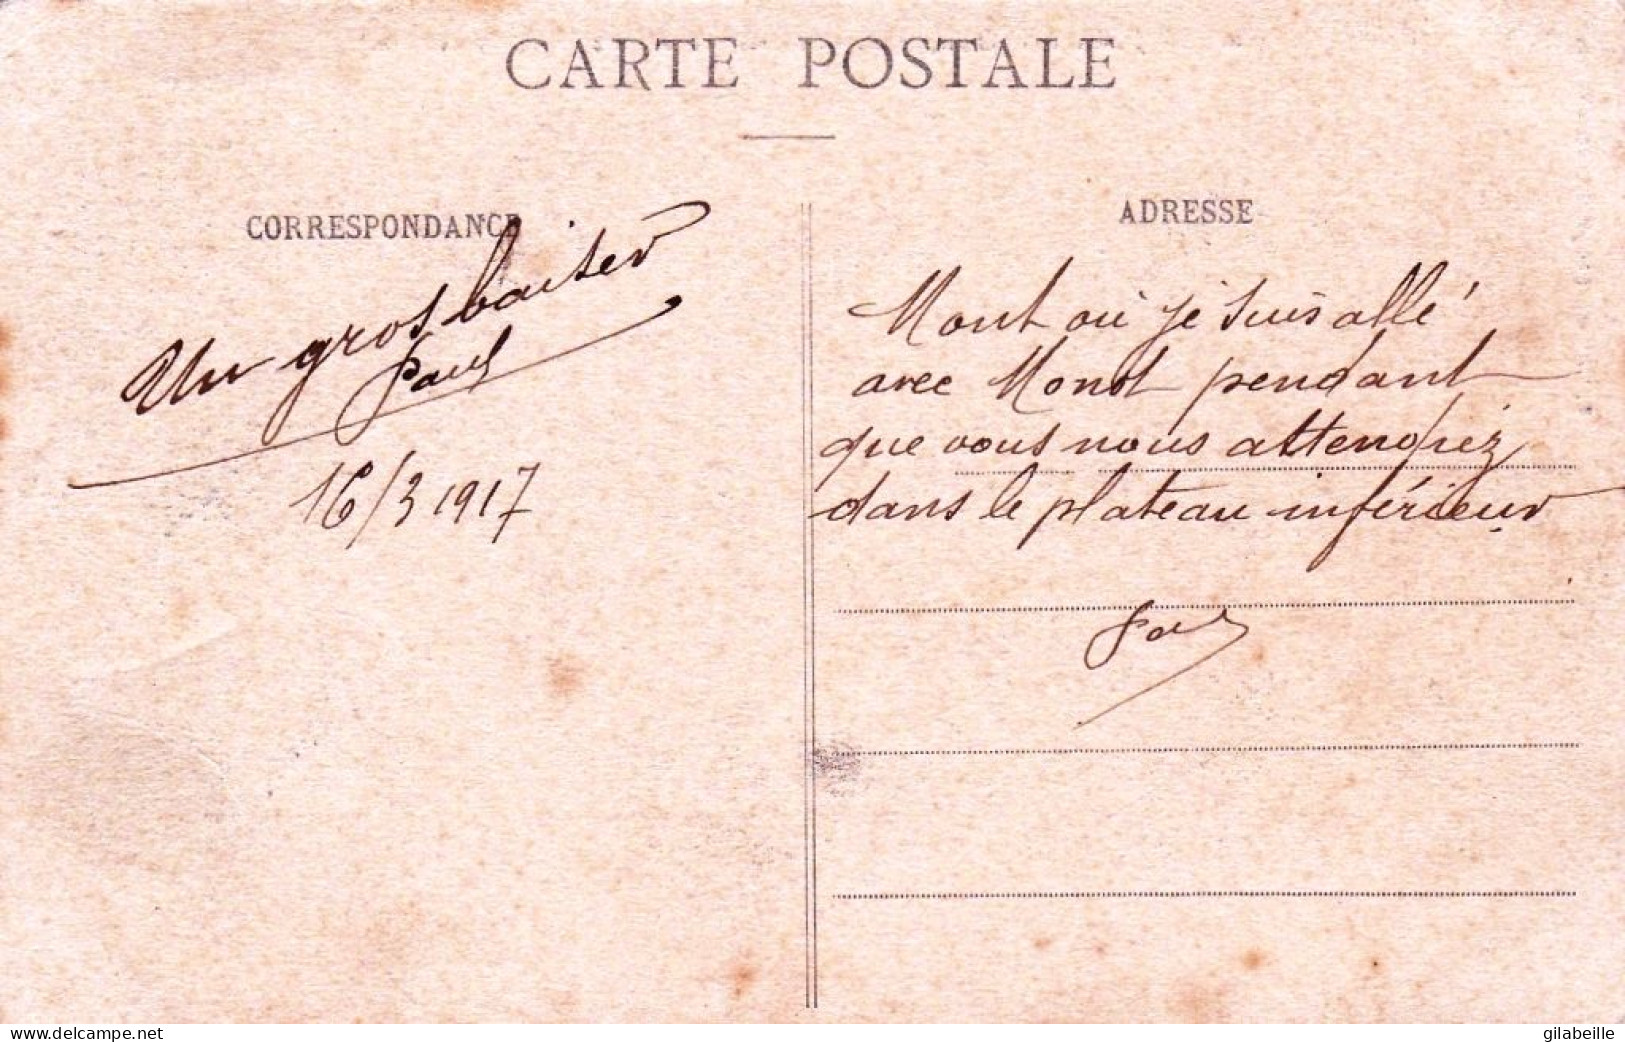 CARTE POSTALE
CORRESPONDANCE
Un gros baiser
Paul
16/3 1917
ADRESSE
Mont où je suis allé
avec Monot pendant
que vous nous attendiez
dans le plateau inférieur
Paul
www.delcampe.net
gilabeille